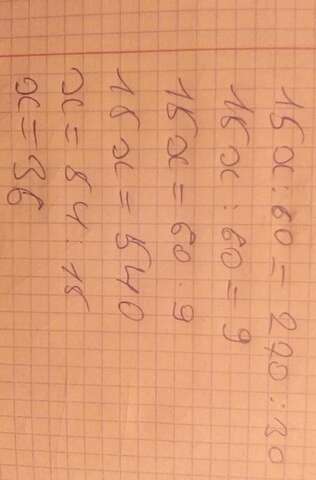 15x:60=270:30
15x:60=9
15x=60·9
15x=540
x=54:15
x=36